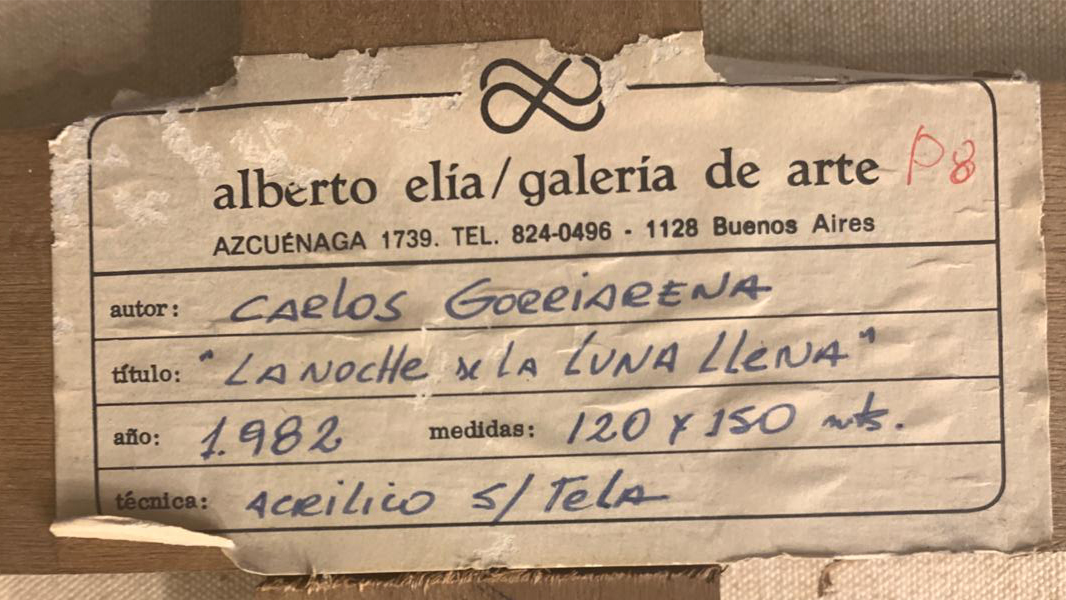 alberto elía/galería de arte P8
AZCUÉNAGA 1739. TEL. 824-0496 - 1128 Buenos Aires
autor: CARLOS GORRIARENA
título: "LA NOCHE DE LA LUNA LLENA"
año: 1.982 medidas: 120 x 150 mts.
técnica: ACRILICO S/TELA